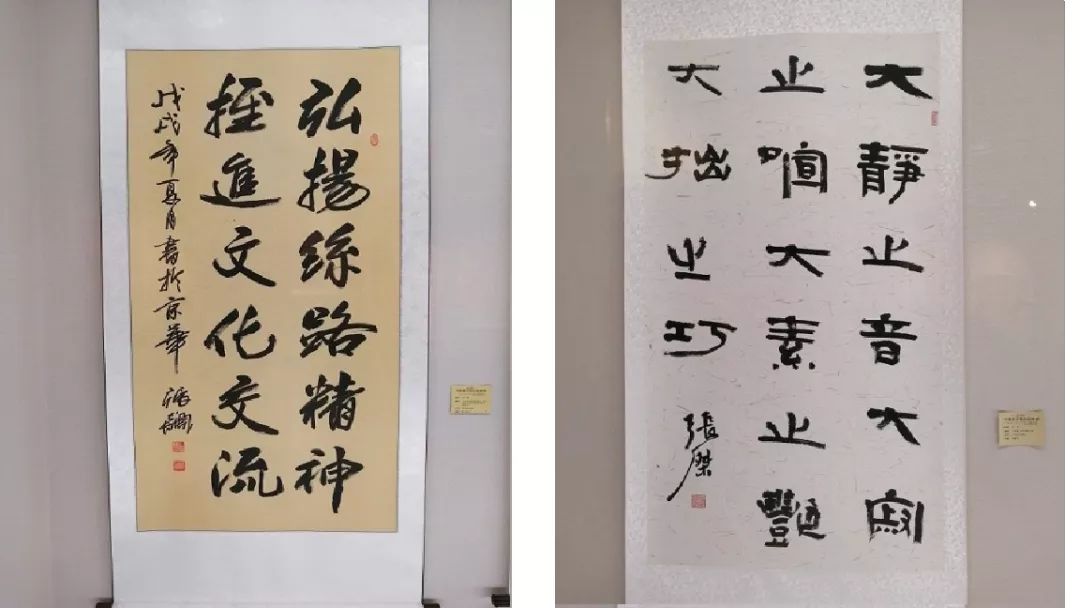 弘揚絲路精神
推進文化交流
戊戌年夏月書於京華
大靜止音大寂
止喧大素止艷
大拙之巧
張傑